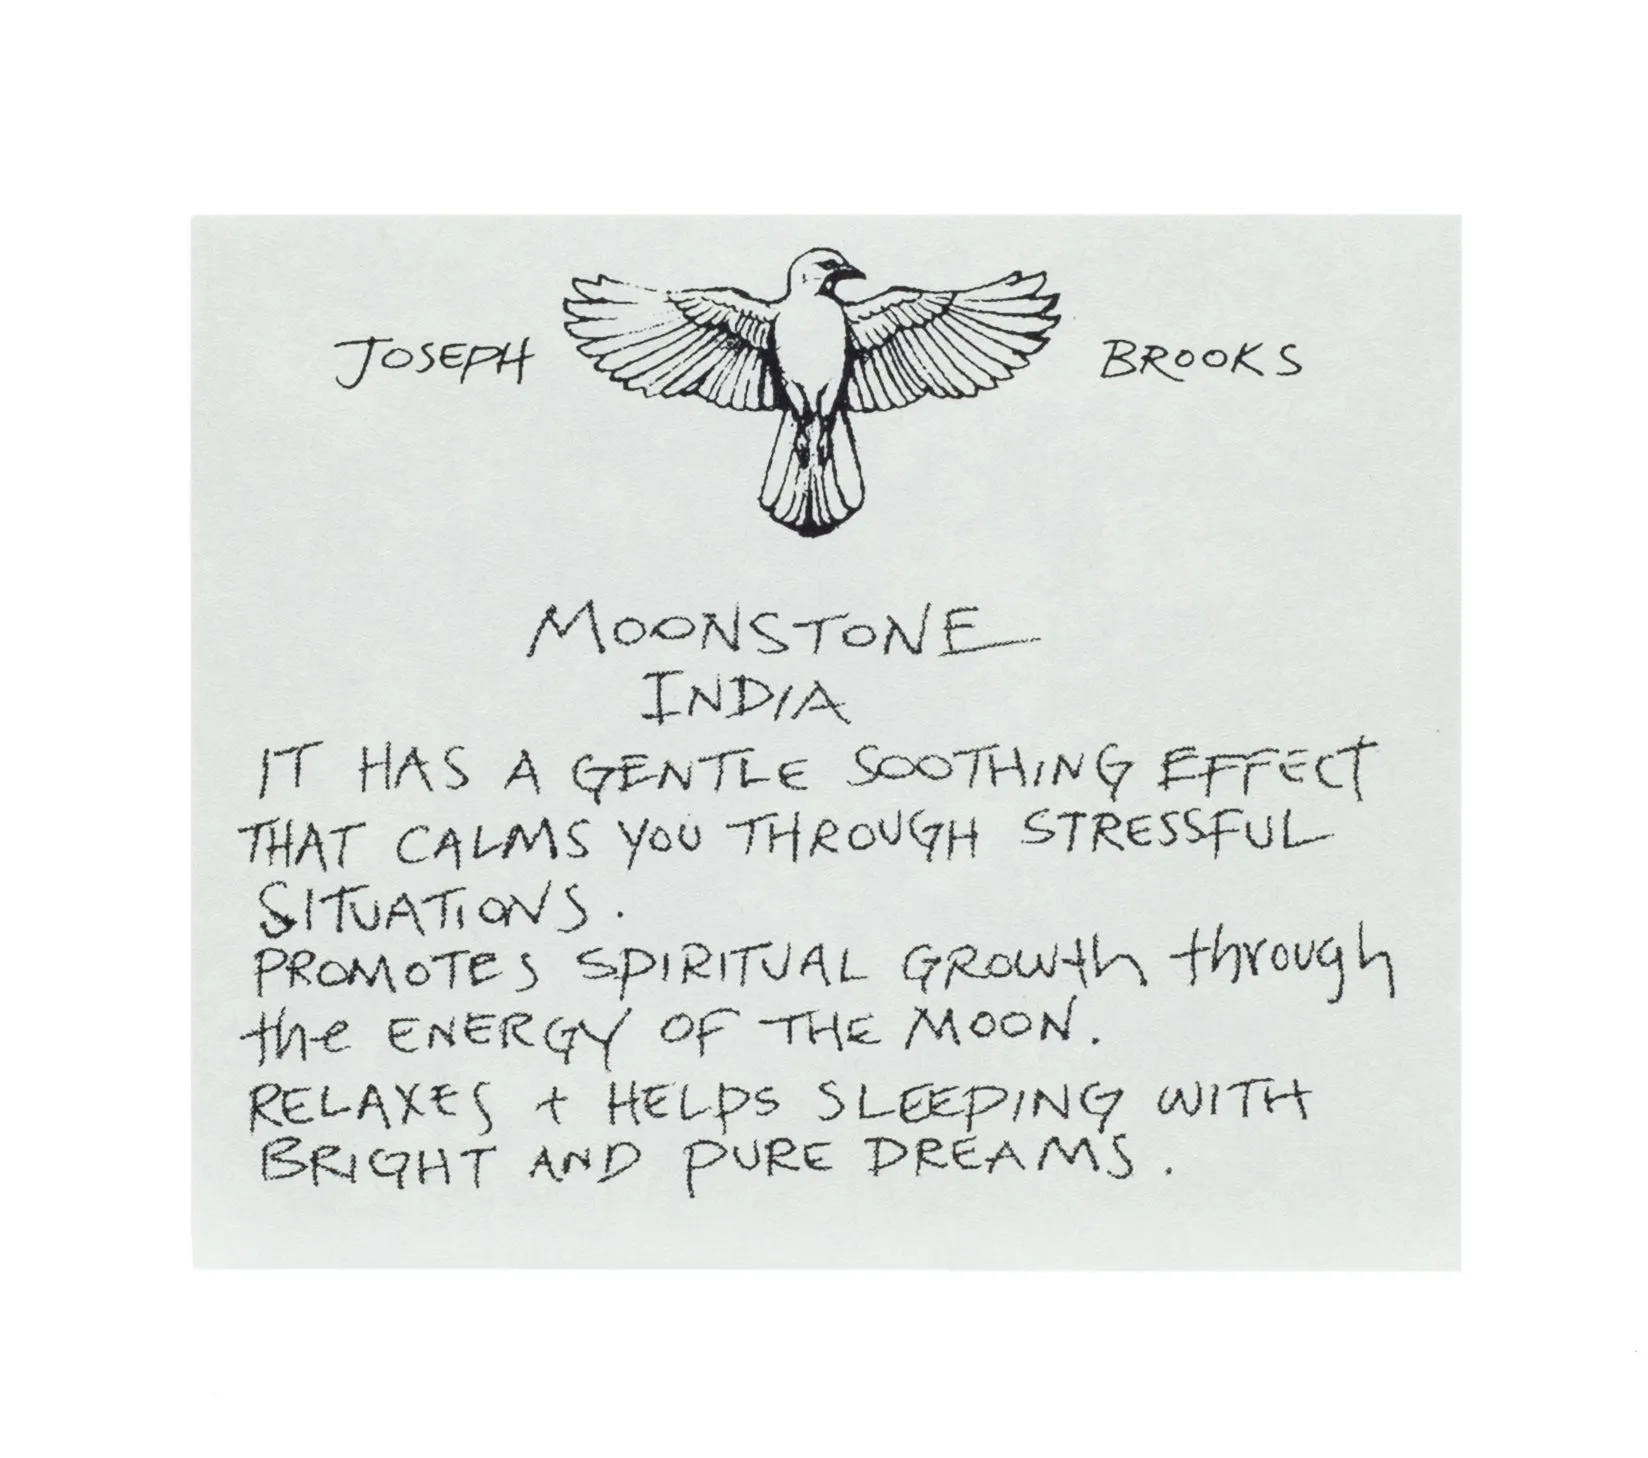 JOSEPH BROOKS
MOONSTONE
INDIA
IT HAS A GENTLE SOOTHING EFFECT
THAT CALMS YOU THROUGH STRESSFUL
SITUATIONS.
PROMOTES SPIRITUAL GROWth through
the ENERGY OF THE MOON.
RELAXES + HELPS SLEEPING WITH
BRIGHT AND PURE DREAMS.